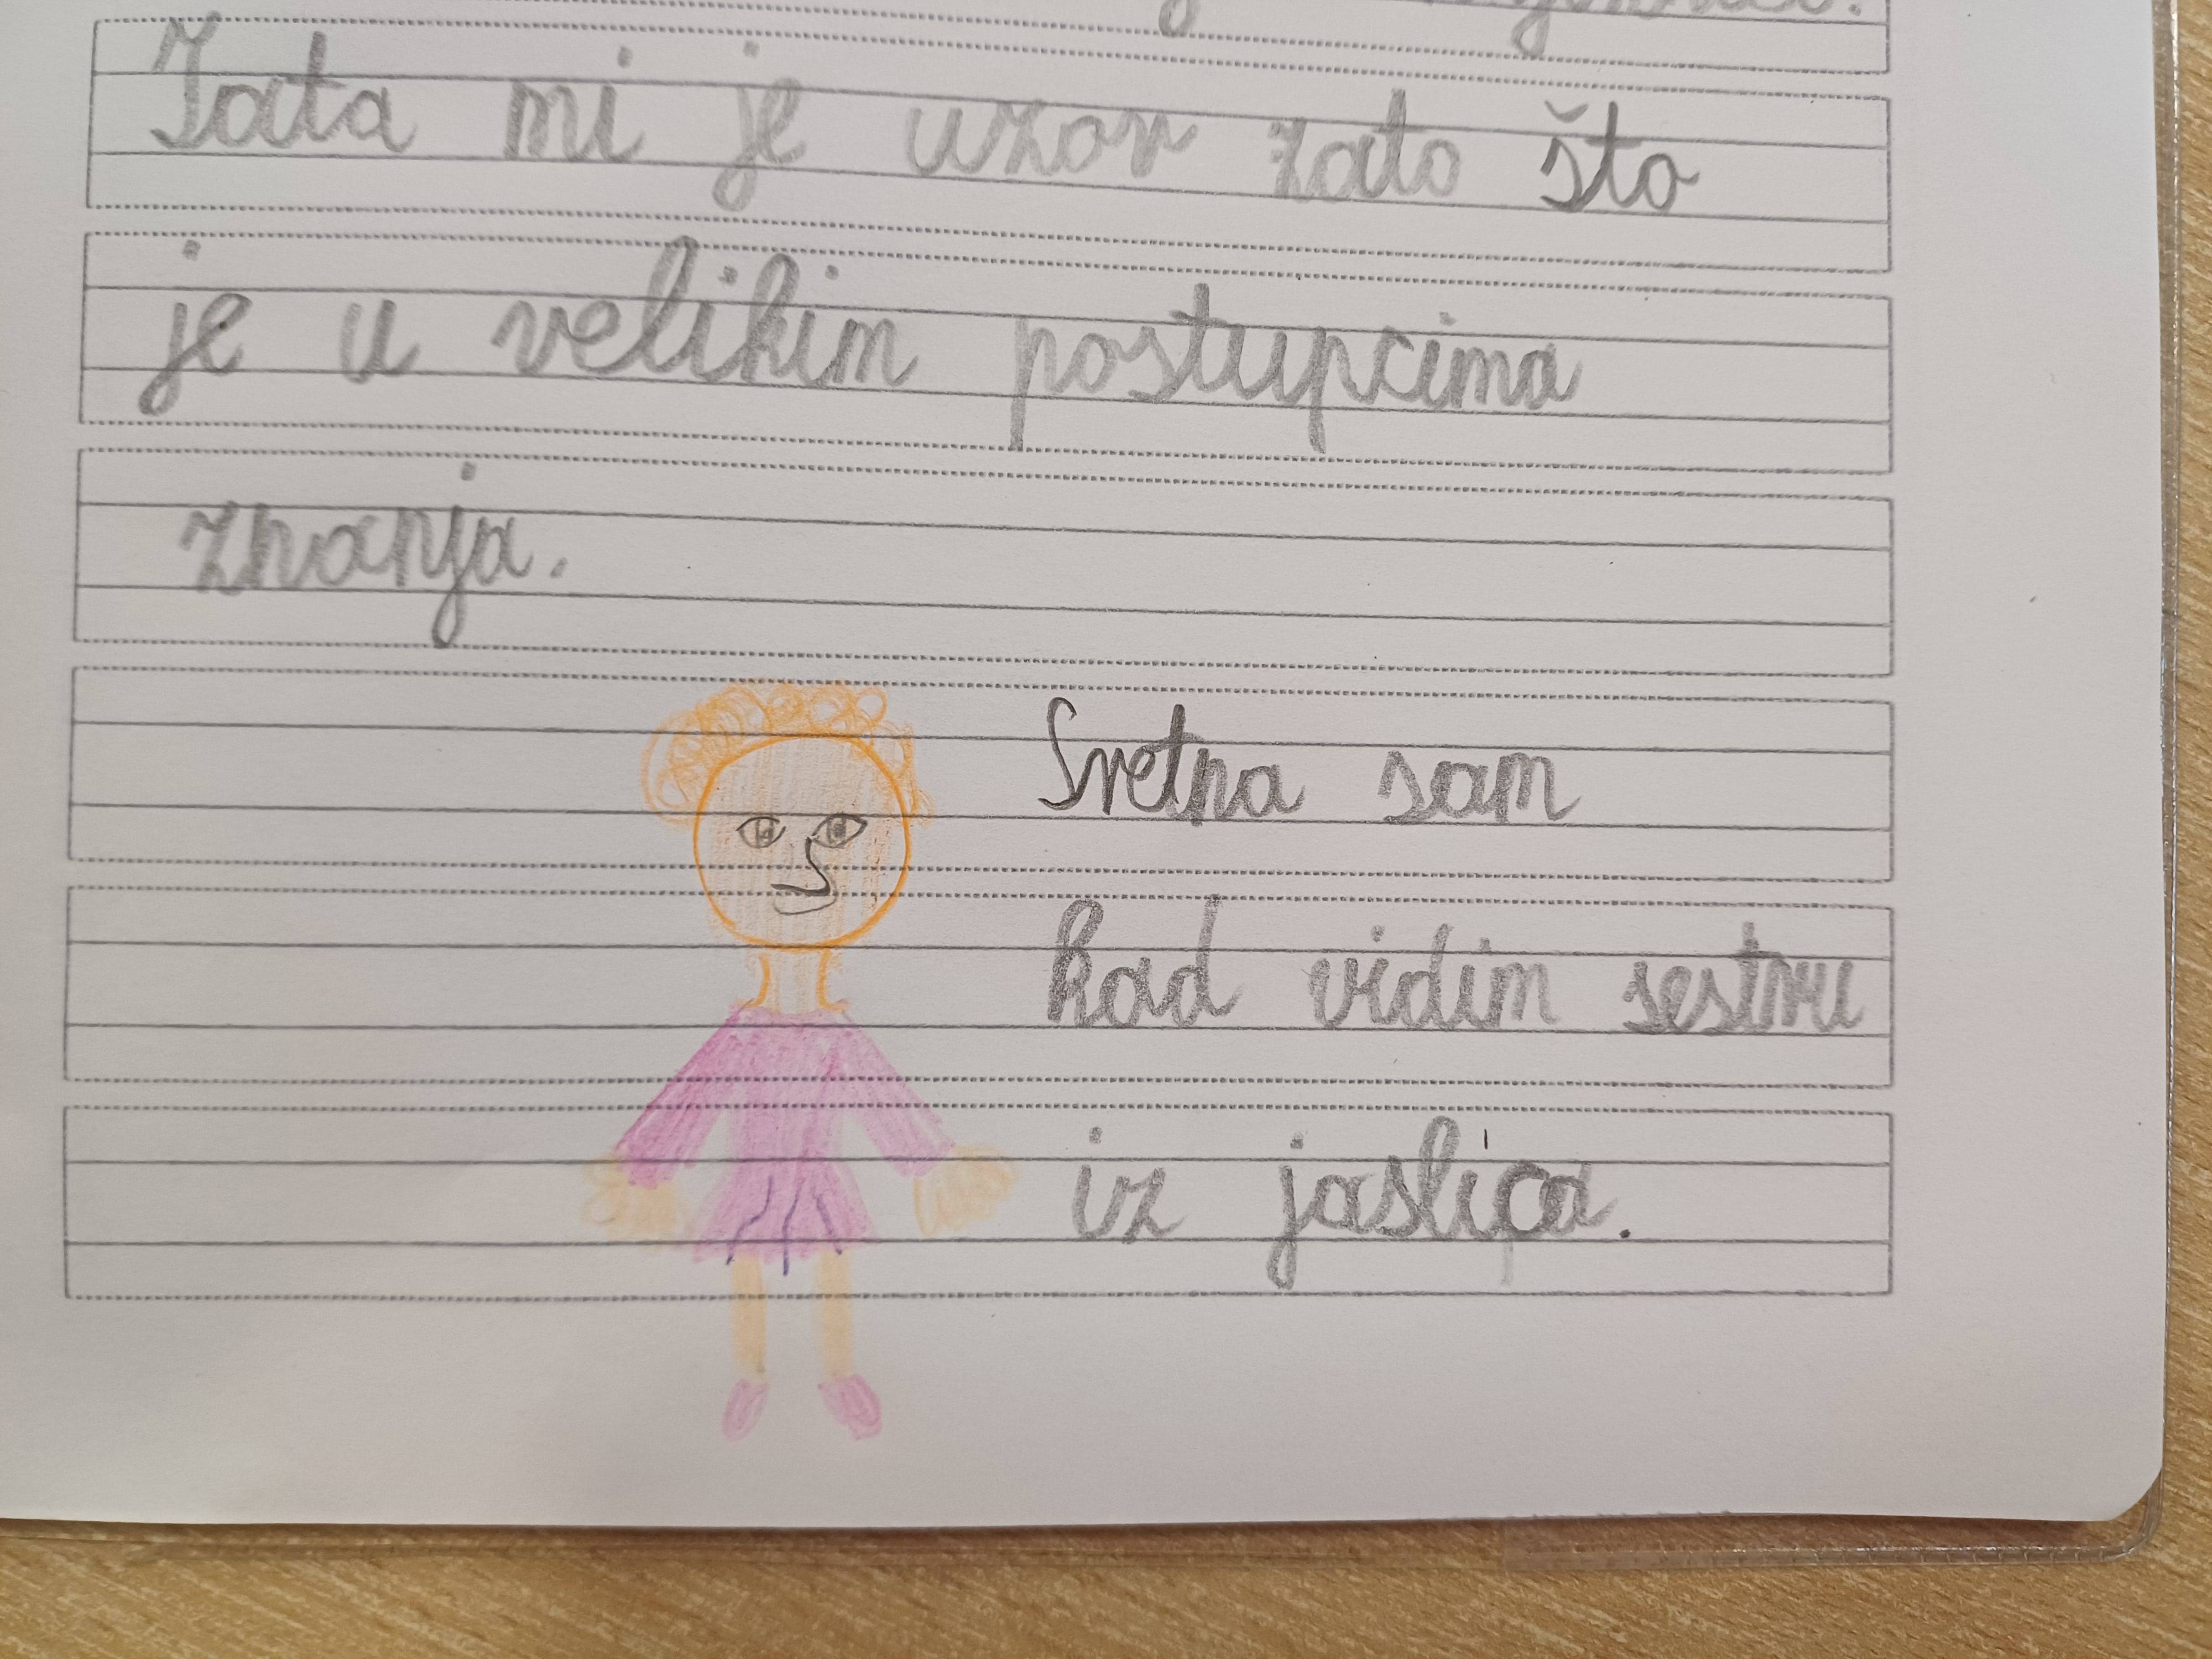 Tata mi je uzor zato što
je u velikim postupcima
znanja.
Sretna sam
kad vidim sestru
iz jaslica.